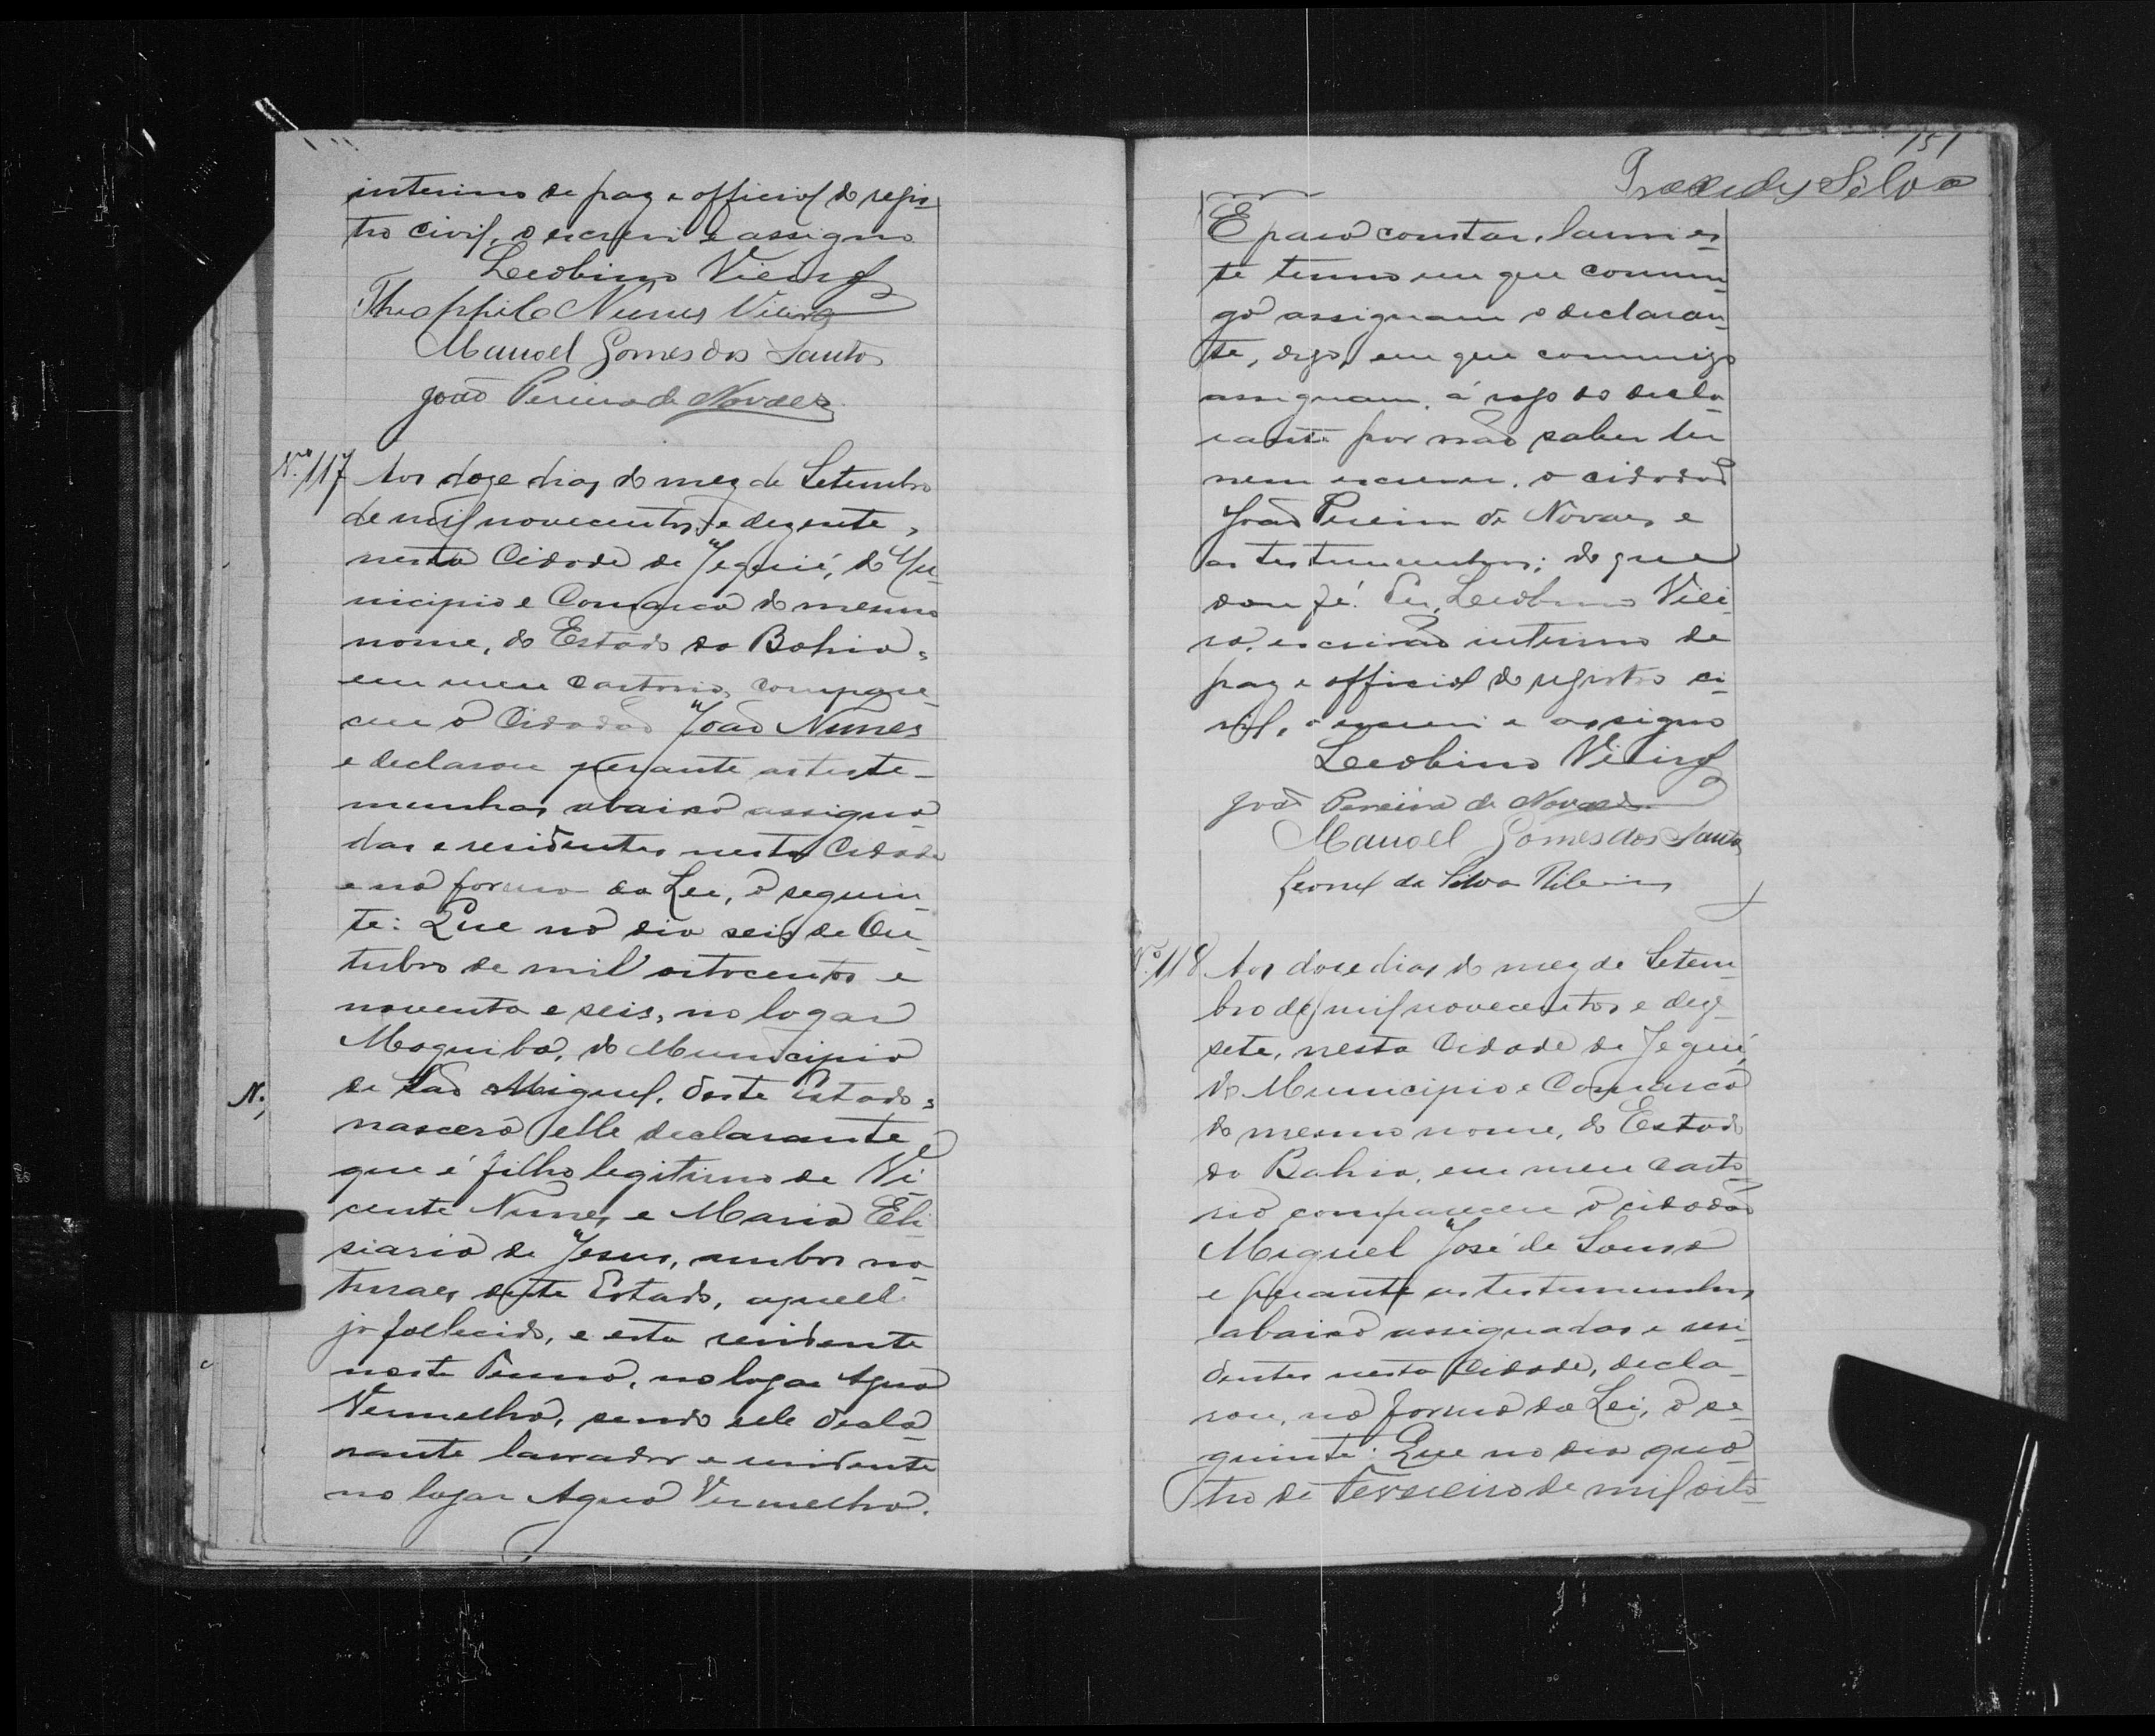 interino de paz e official do regis-
tro civil, o escrevi e assigno
Lecobino Vieira
Theophilo Nunes Vieira
Manoel Gomes dos Santos
João Pereira de Novaes
N.º 117 Aos doze dias do mez de Setembro
de mil novecentos e dezesete,
nesta Cidade de Jequié, do Mu-
nicipio e Comarca do mesmo
nome, do Estado da Bahia,
em meu Cartorio, compare-
ceu o Cidadão João Nunes
e declarou perante as teste-
munhas abaixo assigna-
das e residentes nesta Cidade
e na forma da Lei, o seguin-
te: Que no dia seis de Ou-
tubro de mil oitocentos e
noventa e seis, no logar
Moquiba, do Municipio
N. de São Miguel, deste Estado,
nascera elle declarante
que é filho legitimo de Vi-
cente Nunes e Maria Eli-
siaria de Jesus, ambos na-
turaes deste Estado, aquell
já fallecido, e esta residente
neste Termo, no logar Agua
Vermelha, sendo elle decla-
rante lavrador e residente
no logar Agua Vermelha.
151
Silva
E para constar, lavrei es-
te termo em que commi-
go assignam o declaran-
te, digo, em que commigo
assignam, á rogo do decla-
rante por não saber ler
nem escrever, o cidadão
João Pereira de Novaes e
as testemunhas; do que
dou fé. Eu, Lecobino Viei-
ra, escrivão interino de
paz e official do registro ci-
vil, o escrevi e assigno
Lecobino Vieira
João Pereira de Novaes
Manoel Gomes dos Santos
Leonel da Silva Ribeiro
N.º 118 Aos doze dias do mez de Setem-
bro de mil novecentos e deze-
sete, nesta Cidade de Jequié,
do Municipio e Comarca
do mesmo nome, do Estado
da Bahia, em meu Carto-
rio compareceu o cidadão
Miguel José de Souza
e perante as testemunhas
abaixo assignadas e resi-
dentes nesta Cidade, decla-
rou, na forma da Lei, o se-
guinte: Que no dia qua-
tro de Fevereiro de mil oito-